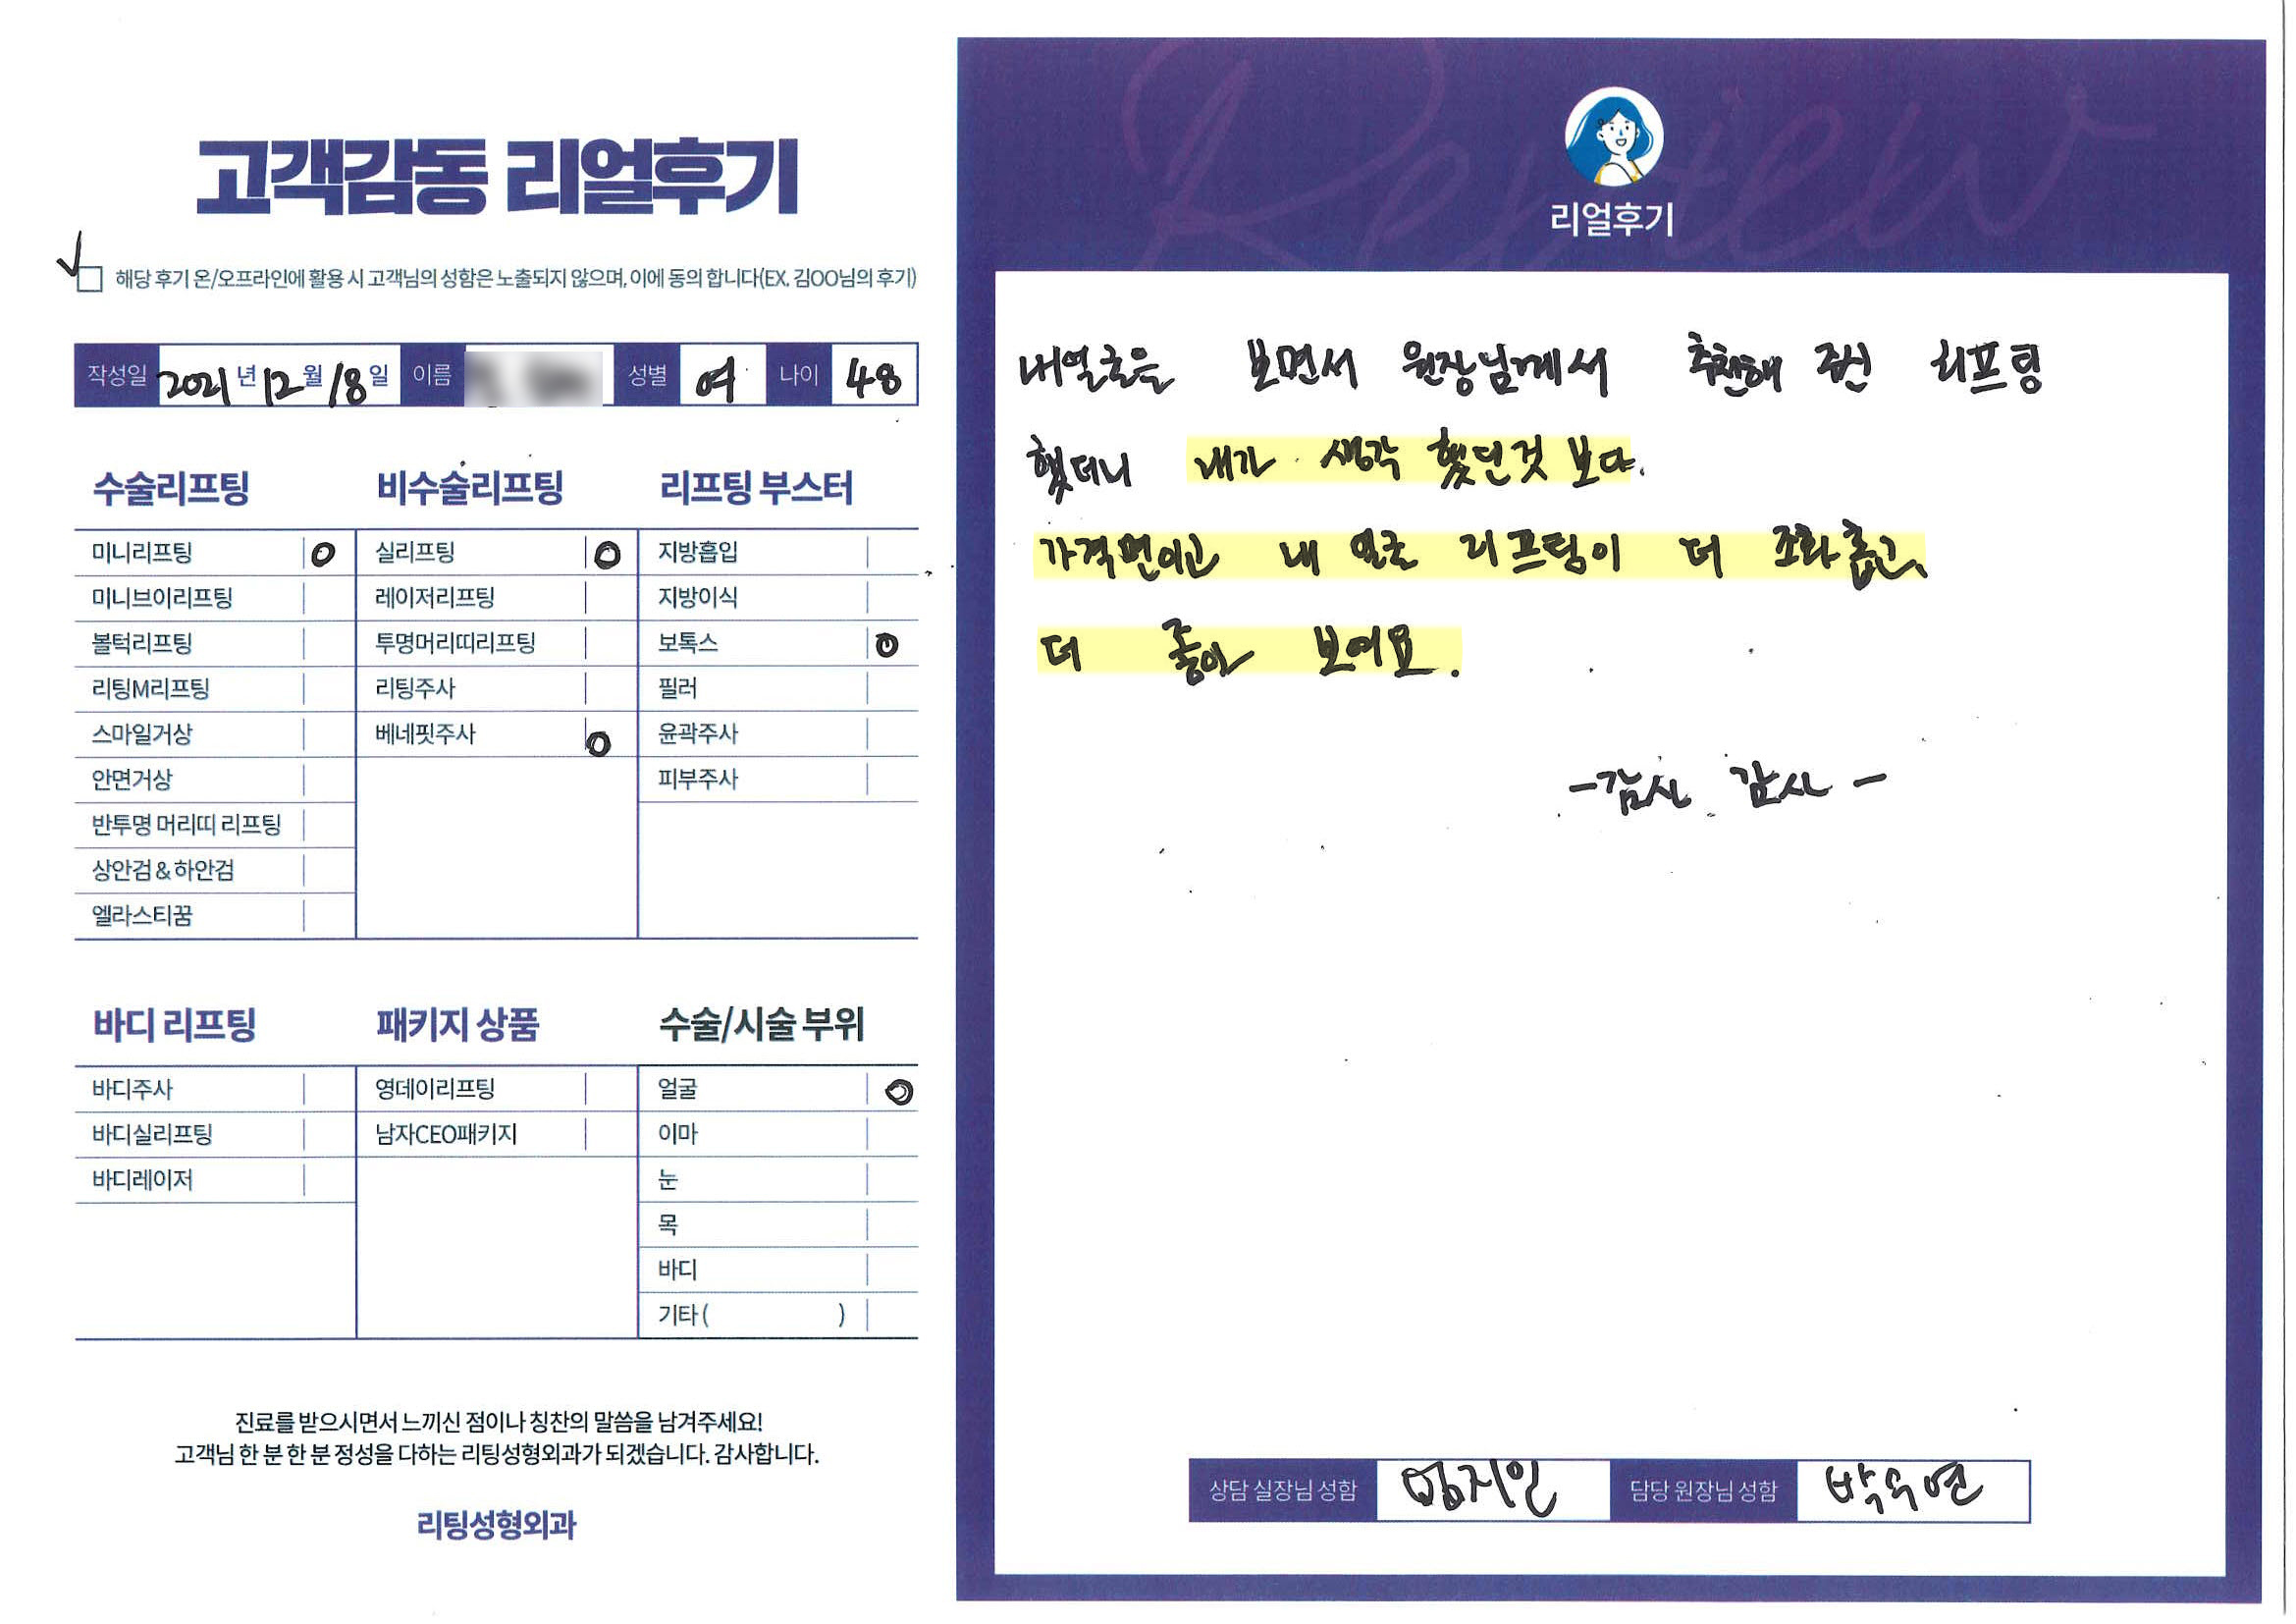 고객감동 리얼후기
해당 후기 온/오프라인에 활용 시 고객님의 성함은 노출되지 않으며, 이에 동의 합니다(EX. 김OO님의 후기)
작성일 2021 년 12 월 18 일 이름 성별 여 나이 48
수술리프팅
미니리프팅 O
미니브이리프팅
볼턱리프팅
리팅M리프팅
스마일거상
안면거상
반투명 머리띠 리프팅
상안검 & 하안검
엘라스티꿈
비수술리프팅
실리프팅 O
레이저리프팅
투명머리띠리프팅
리팅주사
베네핏주사 O
리프팅 부스터
지방흡입
지방이식
보톡스 O
필러
윤곽주사
피부주사
바디 리프팅
바디주사
바디실리프팅
바디레이저
패키지 상품
영데이리프팅
남자CEO패키지
수술/시술 부위
얼굴 O
이마
눈
목
바디
기타 ( )
진료를 받으시면서 느끼신 점이나 칭찬의 말씀을 남겨주세요!
고객님 한 분 한 분 정성을 다하는 리팅성형외과가 되겠습니다. 감사합니다.
리팅성형외과
Review
리얼후기
내얼굴을 보면서 원장님께서 추천해 주신 리프팅
했더니 내가 생각 했던것 보다.
가격면이고 내 얼굴 리프팅이 더 조화롭고,
더 좋아 보여요.
-감사 감사-
상담 실장님 성함 담당 원장님 성함